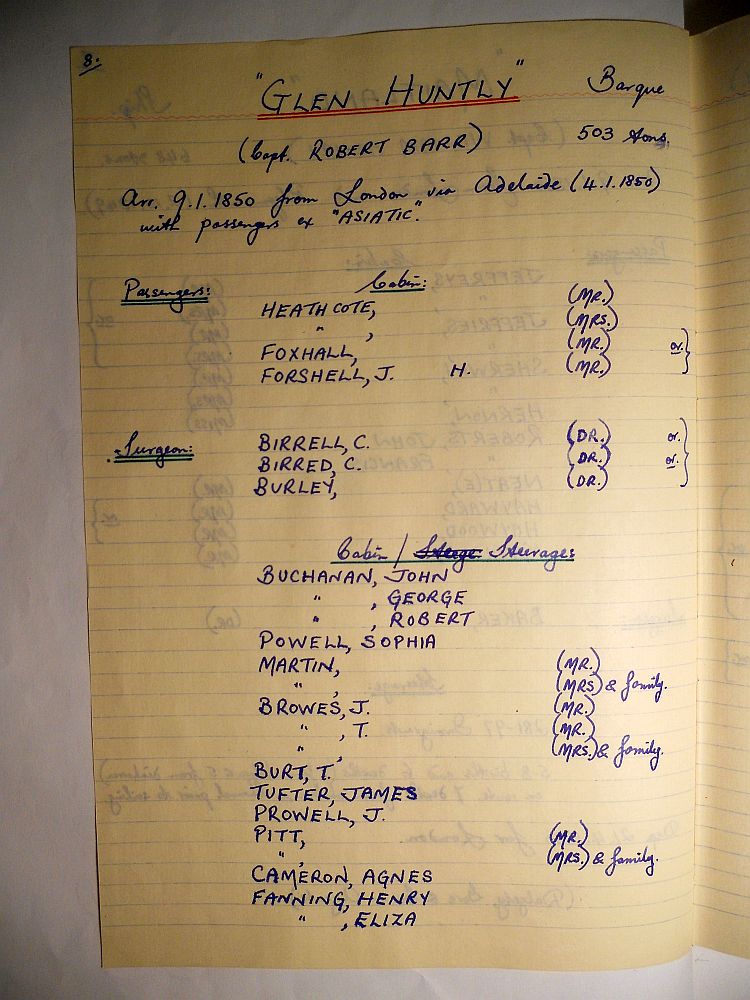 8.
"GLEN HUNTLY" Barque
(Capt. ROBERT BARR) 503 tons.
Arr. 9.1.1850 from London via Adelaide (4.1.1850)
with passengers ex "ASIATIC."
Passengers: Cabin:
HEATHCOTE, (MR.)
" , (MRS.)
FOXHALL, (MR.) or
FORSHELL, J. H. (MR.)
Surgeon: BIRRELL, C. (DR.) or
BIRRED, C. (DR.) or
BURLEY, (DR.)
Cabin / Steerage:
BUCHANAN, JOHN
" , GEORGE
" , ROBERT
POWELL, SOPHIA
MARTIN, (MR.)
" , (MRS) & family.
BROWES, J. (MR.)
" , T. (MR.)
" , (MRS.) & family.
BURT, T.
TUFTER, JAMES
PROWELL, J.
PITT, (MR.)
" , (MRS.) & family.
CAMERON, AGNES
FANNING, HENRY
" , ELIZA